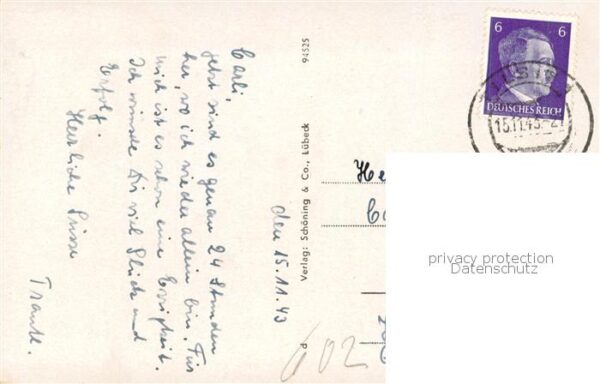 den 15.11.43
Carli,
jetzt sind es genau 24 Stunden
her, wo ich wieder allein bin. Für
mich ist es schon eine Ewigkeit.
Ich wünsche Dir viel Glück und
Erfolg.
Herzliche Grüsse
Traudl.
94525
Verlag: Schöning & Co., Lübeck
P
602
6 6
DEUTSCHES REICH
15.11.43
He
Ca
privacy protection
Datenschutz